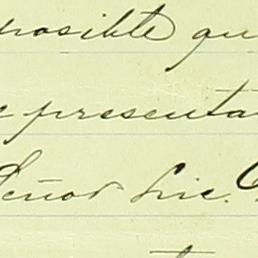 posible qu
presenta
Señor Lic.